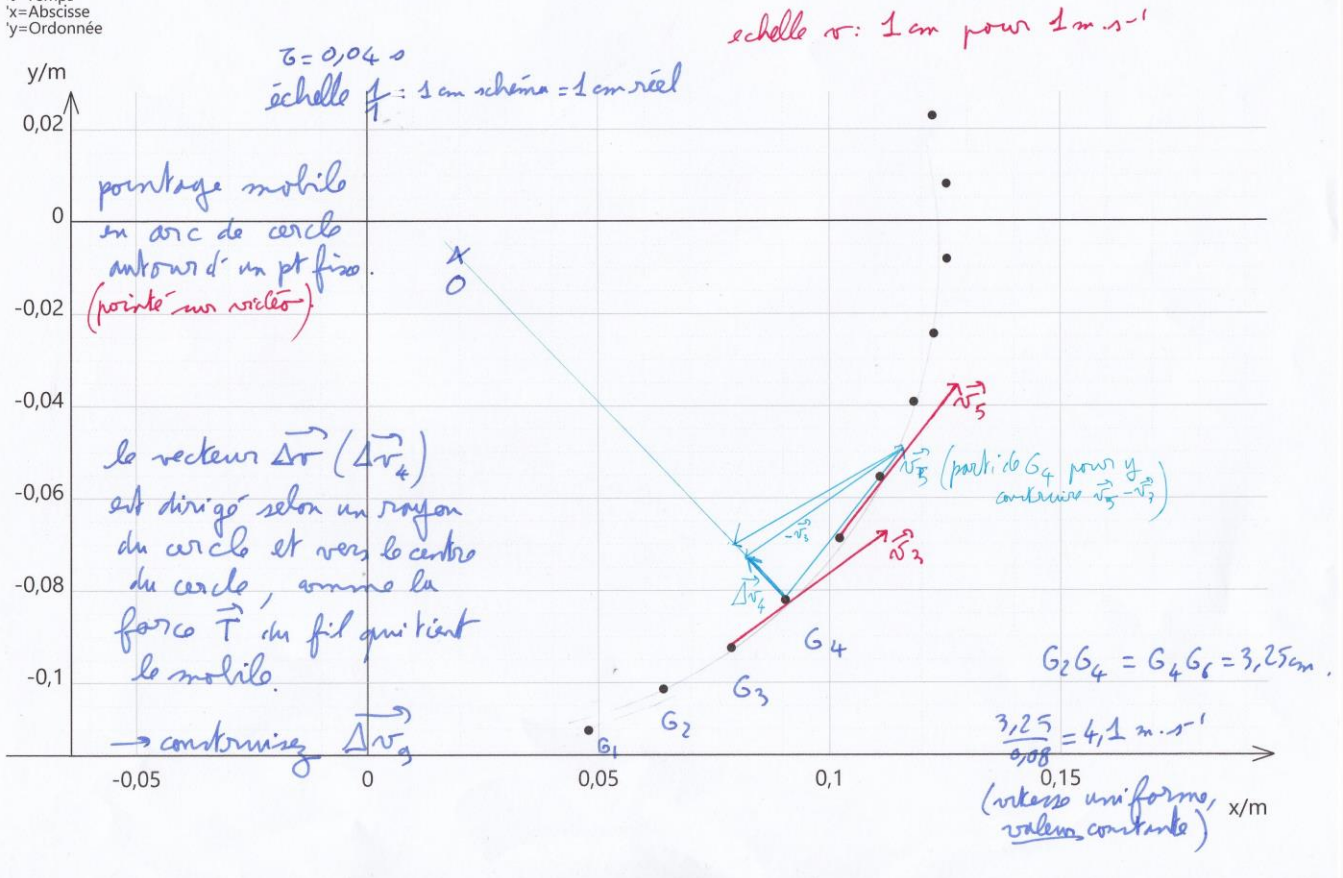 'x=Abscisse
'y=Ordonnée
echelle v: 1 cm pour 1 m.s⁻¹
τ = 0,04 s
échelle 1/1 : 1 cm schéma = 1 cm réel
y/m
0,02
0
-0,02
-0,04
-0,06
-0,08
-0,1
pointage mobile
en arc de cercle
autour d'un pt fixe.
(pointé sur vidéo)
O
le vecteur Δv⃗ (Δv⃗₄)
est dirigé selon un rayon
du cercle et vers le centre
du cercle, comme la
force T⃗ du fil qui tient
le mobile.
→ construisez Δv⃗₉
v⃗₅
v⃗₅ (parti de G₄ pour y
construire v⃗₅ - v⃗₃)
-v⃗₃
v⃗₃
Δv⃗₄
G₄
G₃
G₂
G₁
G₂G₄ = G₄G₆ = 3,25 cm.
3,25/0,08 = 4,1 m.s⁻¹
(vitesse uniforme,
valeur constante)
-0,05
0
0,05
0,1
0,15
x/m